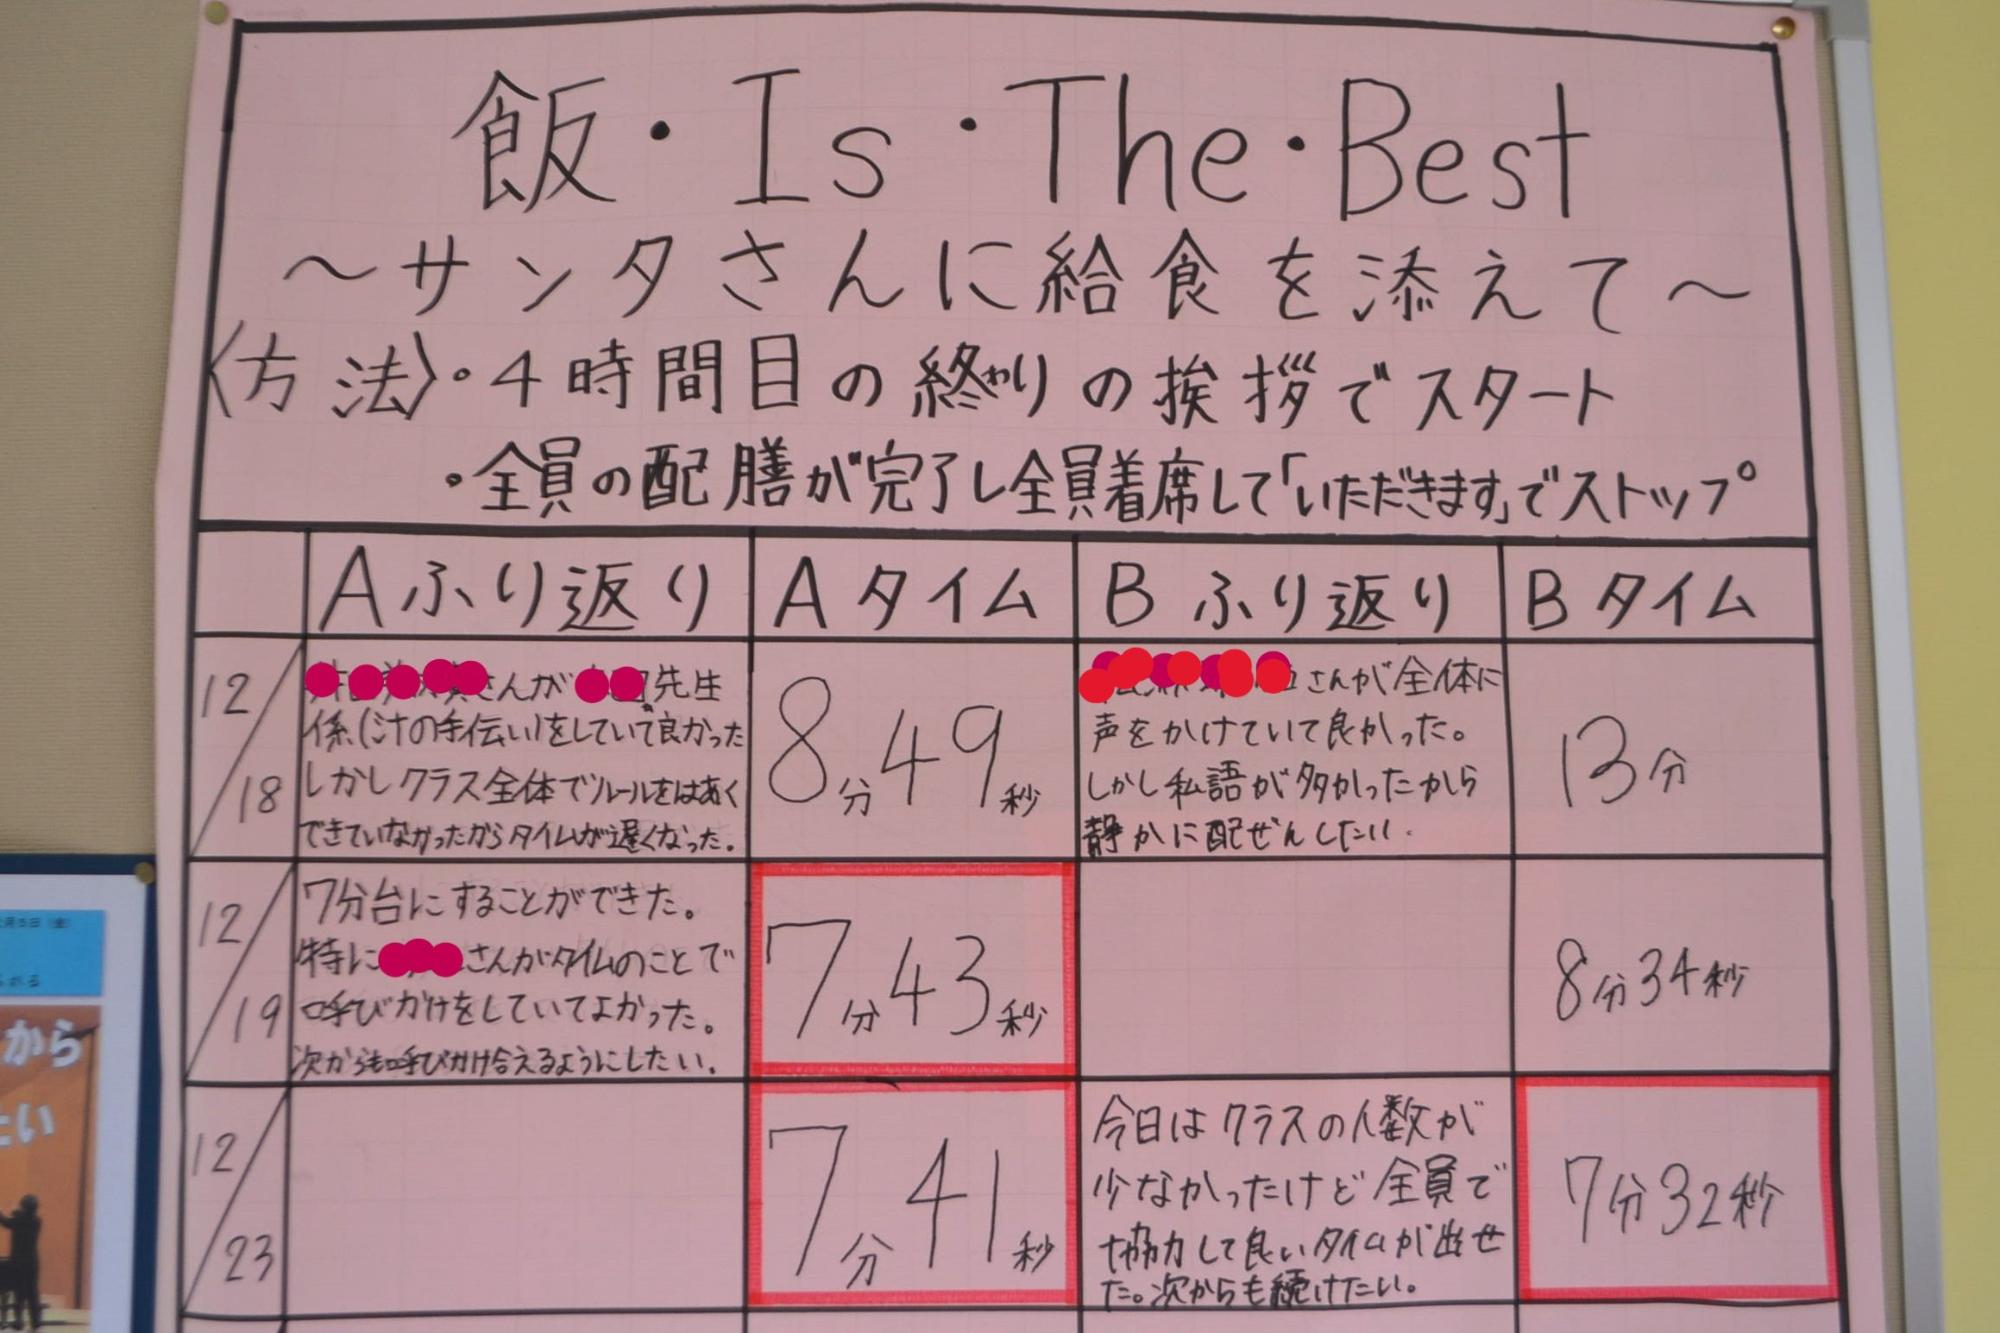 飯・Is・The・Best
～サンタさんに給食を添えて～
〈方法〉・4時間目の終わりの挨拶でスタート
・全員の配膳が完了し全員着席して「いただきます」でストップ。
Aふり返り
Aタイム
Bふり返り
Bタイム
12/18
さんが
先生
係(汁の手伝い)をしていて良かった
しかしクラス全体でルールをはあく
できていなかったからタイムが遅くなった。
8分49秒
さんが全体に
声をかけていて良かった。
しかし私語が多かったから
静かに配ぜんしたい.
13分
12/19
7分台にすることができた。
特に
さんがタイムのことで
呼びかけをしていてよかった。
次からも呼びかけ合えるようにしたい.
7分43秒
8分34秒
12/23
7分41秒
今日はクラスの人数が
少なかったけど全員で
協力して良いタイムが出せ
た。次からも続けたい。
7分32秒
から
たい